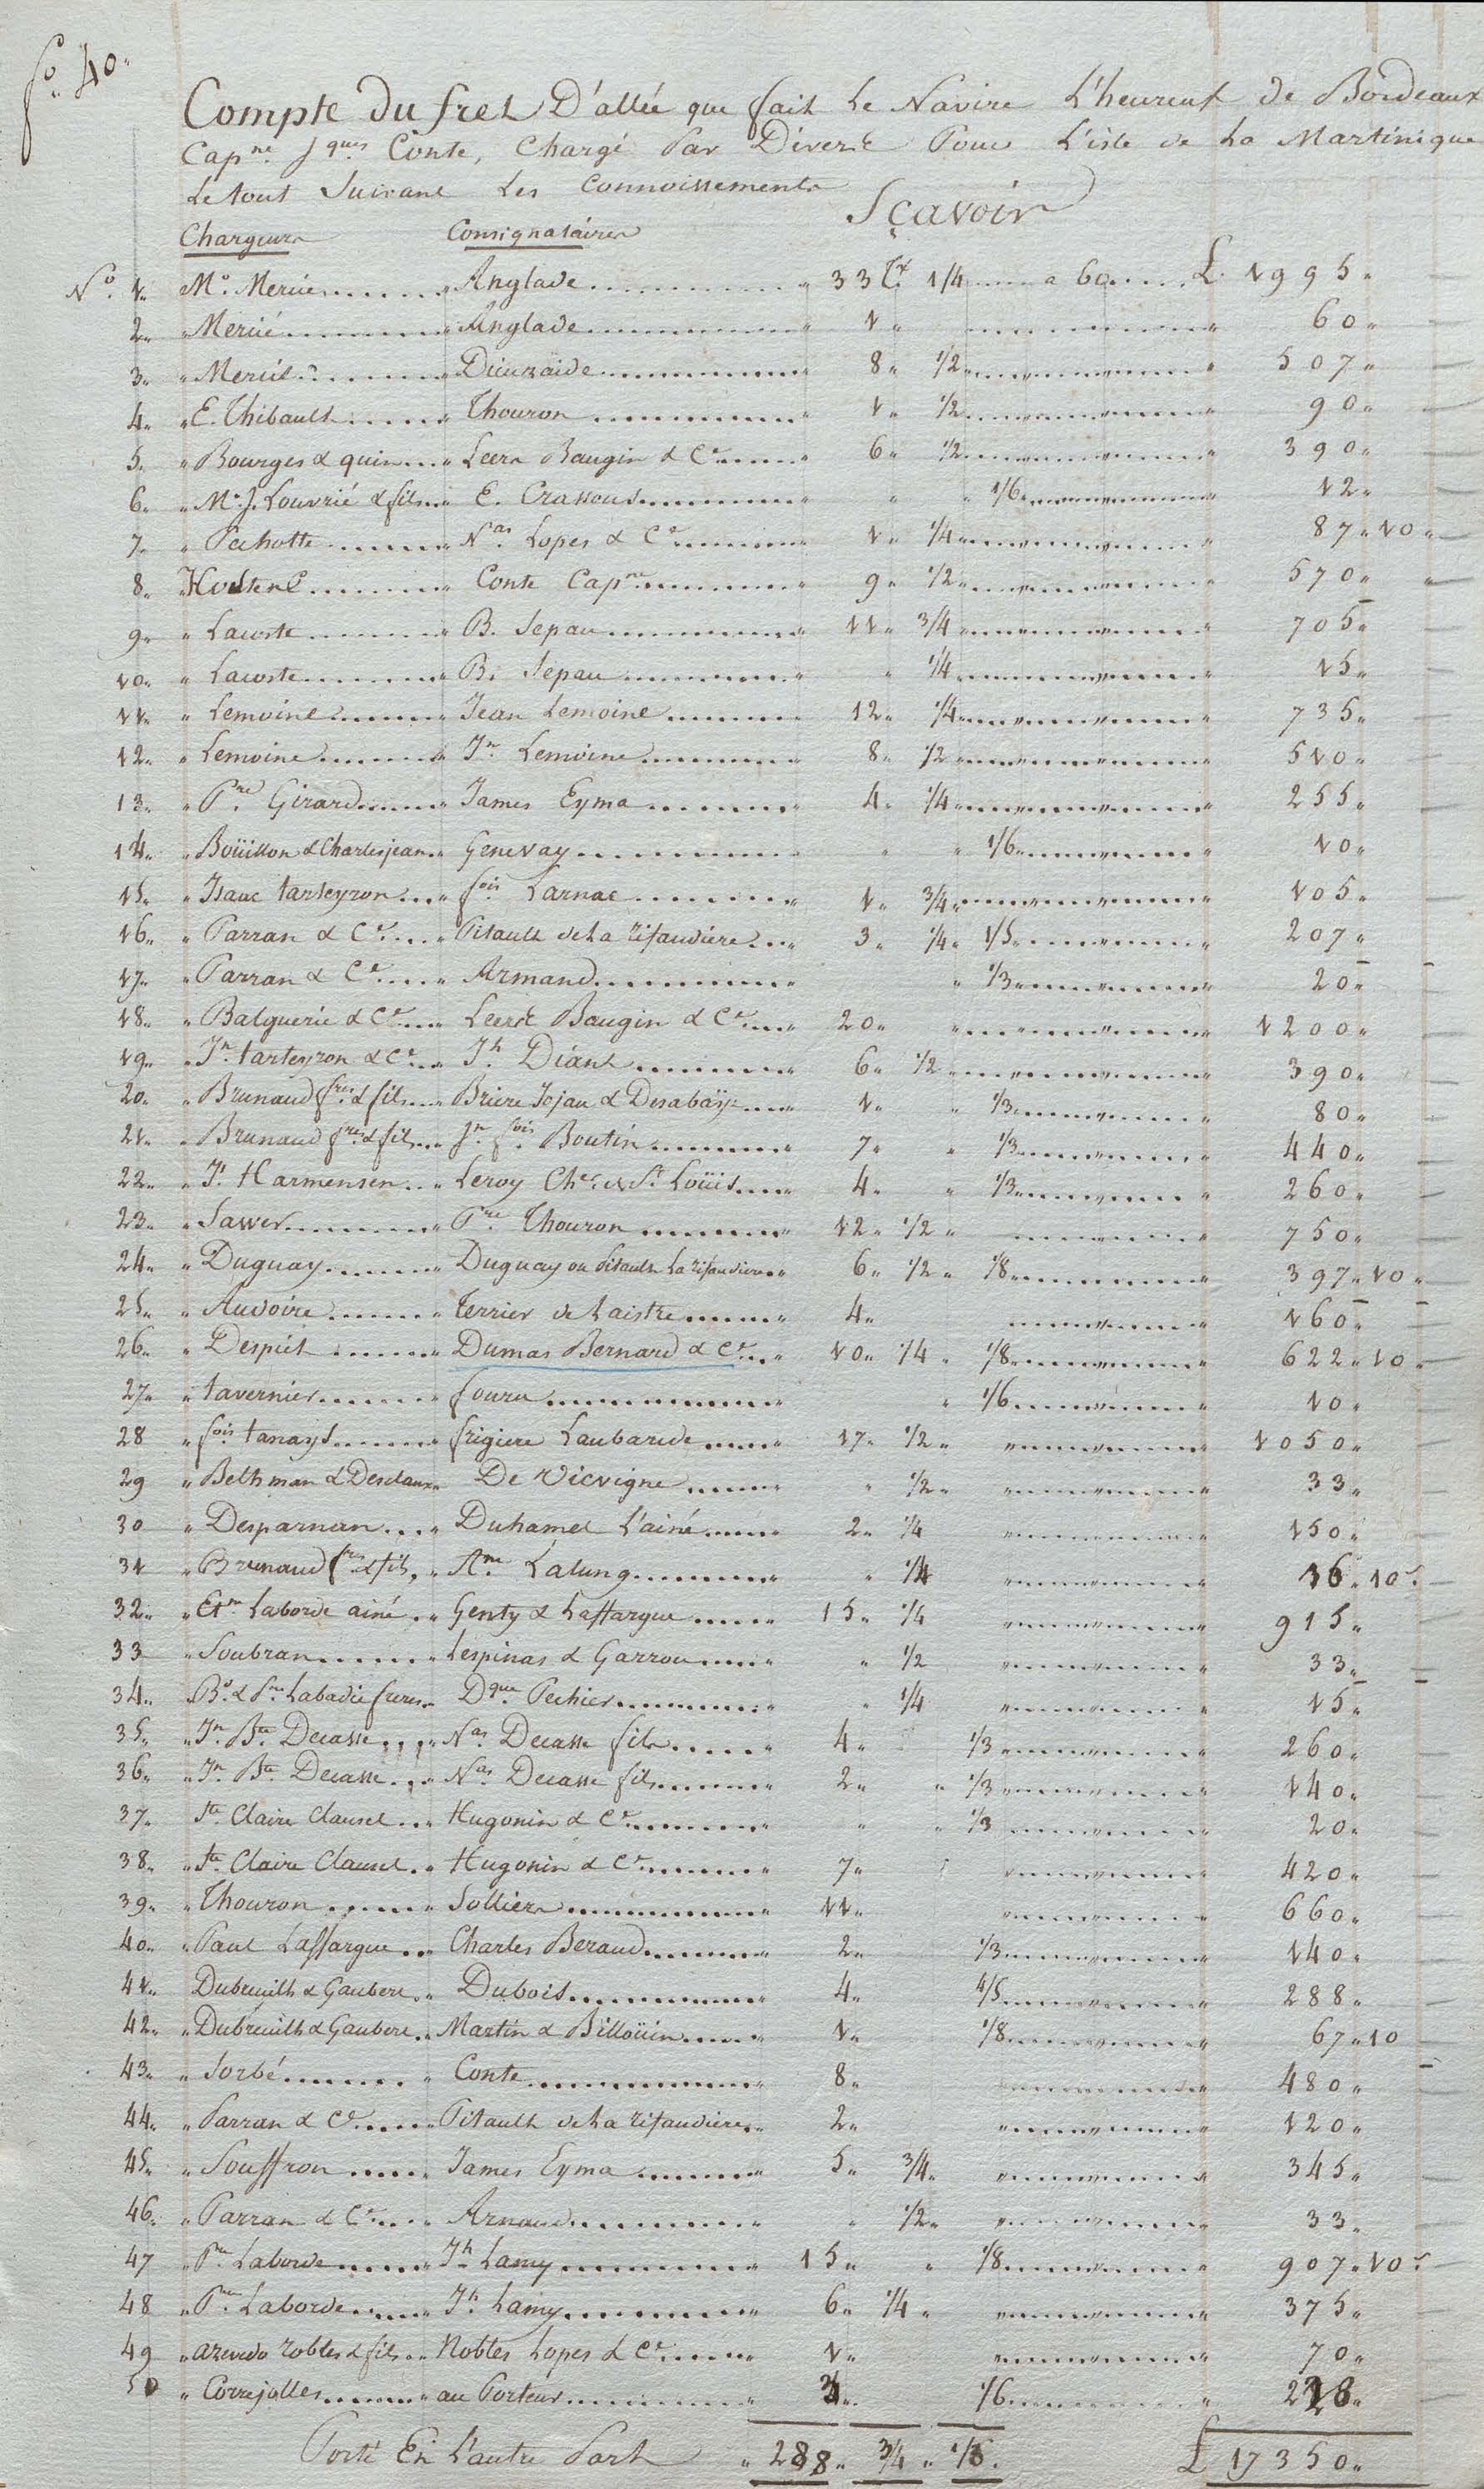 fo. 40.
Compte du fret D'allée que fait Le Navire L'heureux de Bordeaux
Capne. Jques Conte, Chargé Par Divers Pour L'isle de La Martinique
Le tout Suivant Les Connoissements
Sçavoir
Chargeurs Consignataires
No. 1. Mr. Mercié Anglade 33 Tx. 1/4 a 60 £ 1995
2. Mercié Anglade 1 60
3. Mercié Dieuzaide 8 1/2 507
4. E. Thibault Thouron 1 1/2 90
5. Bourges & quin Leers Baugin & Ce 6 1/2 390
6. Mr. J. Louvrié & fils E. Crassous 1/6 12
7. Pechotte Nas. Lopes & Ce 1 1/4 87 10
8. Hostene Conte Capne 9 1/2 570
9. Lacoste B. Sepau 11 3/4 705
10. Lacoste B. Sepau 1/4 15
11. Lemoine Jean Lemoine 12 1/4 735
12. Lemoine Jn. Lemoine 8 1/2 510
13. Pre. Girard James Eyma 4 1/4 255
14. Boüillon & Charlesjean Genevay 1/6 10
15. Isaac tarteyron fois. Larnac 1 3/4 105
16. Parran & Ce Pitault de La rifaudiere 3 1/4 1/5 207
17. Parran & Ce Armand 1/3 20
18. Balguerie & Ce Leers Baugin & Ce 20 1200
19. Jn. tarteyron & Ce Jh. Diant 6 1/2 390
20. Brunaud fres. & fils Briere Jojau & Desabaÿe 1 1/3 80
21. Brunaud fres. & fils Jn. fois. Boutin 7 1/3 440
22. Js. Harmensen Leroy Cher. de St. Loüis 4 1/3 260
23. Sawer Pre. Thouron 12 1/2 750
24. Duguay Duguay ou Pitault La rifaudiere 6 1/2 1/8 397 10
25. Audoire Terrier de Laistre 4 160
26. Despiet Dumas Bernard & Ce 10 1/4 1/8 622 10
27. tavernier fouru 1/6 10
28 fois. tanays frigiere Laubarede 17 1/2 1050
29 Bethman & Desclaux De Vicvigne 1/2 33
30 Desparnan Duhamel L'ainé 2 1/4 150
31 Brunaud fres. & fils Ane. Lalung 1/4 16 10
32. Etne. Laborde ainé Genty & Laffargue 15 1/4 915
33 Soubran Lespinas & Garrou 1/2 33
34. Bd. & Pre. Labadie freres Dque. Pechier 1/4 15
35. Jn. Bte. Decasse Nas. Decasse fils 4 1/3 260
36. Jn. Bte. Decasse Nas. Decasse fils 2 1/3 140
37. Ste. Claire Clausel Hugonin & Ce 1/3 20
38. Ste. Claire Clausel Hugonin & Ce 7 420
39. Thouron Solliers 11 660
40. Paul Laffargue Charles Beraud 2 1/3 140
41. Dubreuilh & Gaubere Dubois 4 4/5 288
42. Dubreuilh & Gaubere Martin & Billoüin 1 1/8 67 10
43. Sorbé Conte 8 480
44. Parran & Ce Pitault de La rifaudiere 2 120
45. Souffron James Eyma 5 3/4 345
46. Parran & Ce Arnaud 1/2 33
47 Pre. Laborde Jh. Lamy 15 1/8 907 10
48 Pre. Laborde Jh. Lamy 6 1/4 375
49 azevedo robles & fils Nobles Lopes & Ce 1 70
50 Correjolles au Porteur 1/6
Porté En L'autre Part 288 3/4 £ 17350